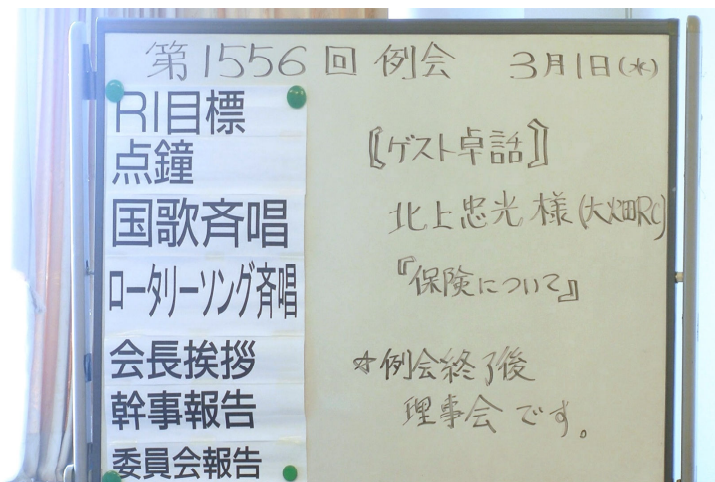 第1556回 例会 3月1日(水)
RI目標
点鐘
国歌斉唱
ロータリーソング斉唱
会長挨拶
幹事報告
委員会報告
〖ゲスト卓話〗
北上忠光様(大畑RC)
『保険について』
☆例会終了後
理事会です。